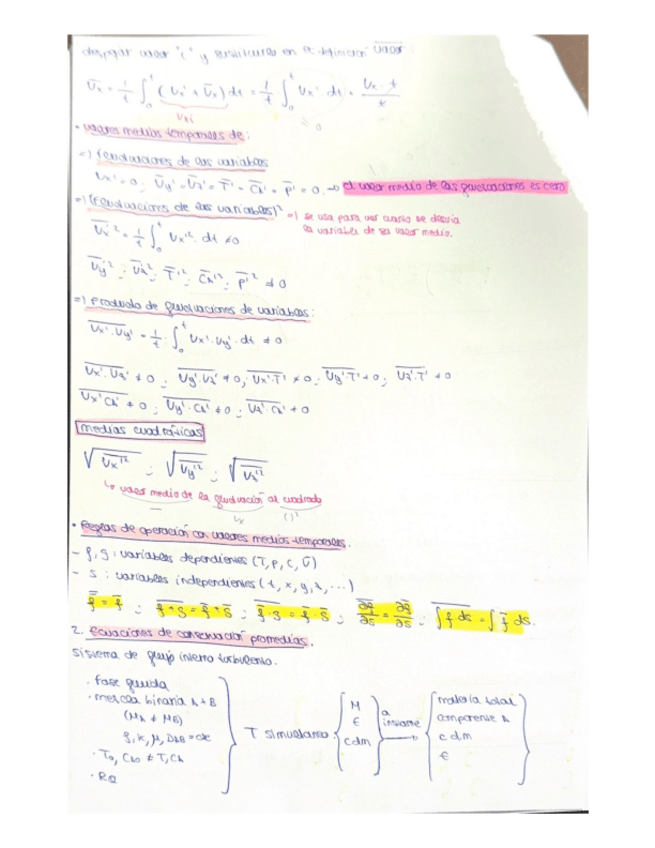 despejar valor "c" y sustituirlo en el definición valor:
Ūx = 1/t ∫₀ᵗ (Ux' + Ūx) dt = 1/t ∫₀ᵗ Ux' dt + Ux · t / t
Uxi = 0
• Valores medios temporales de:
=) fluctuaciones de las variables
Ūx' = 0; Ūy' = Ūz' = T̄' = C̄A' = P̄' = 0. → el valor medio de las fluctuaciones es cero
=) (fluctuaciones de las variables)² =) se usa para ver cuanto se desvía
la variable de su valor medio.
Ūx'² = 1/t ∫₀ᵗ Ux'² · dt ≠ 0
Ūy'²; Ūz'²; T̄'²; C̄A'²; P̄'² ≠ 0
=) Producto de fluctuaciones de variables:
Ux'·Uy' = 1/t · ∫₀ᵗ Ux'·Uy'·dt ≠ 0
Ux'·Uz' ≠ 0; Uy'·Uz' ≠ 0; Ux'·T' ≠ 0; Uy'·T' ≠ 0; Uz'·T' ≠ 0
Ux'CA' ≠ 0; Uy'·CA' ≠ 0; Uz'·CA' ≠ 0
medias cuadráticas
√Ux'²; √Uy'²; √Uz'²
↳ valor medio de la fluctuación al cuadrado
Ux ( )²
• Reglas de operación con valores medios temporales.
- f, g: variables dependientes (T, P, C, U)
- s: variables independientes (t, x, y, z, ...)
f̿ = f̄; f+g = f̄+ḡ; f̄·g = f̄·ḡ; ∂f/∂s = ∂f̄/∂s; ∫f ds = ∫f̄ ds.
2. Ecuaciones de conservación promedias.
Sistema de flujo interno turbulento.
· fase fluida
· mezcla binaria A + B
(MA ≠ MB)
ρ, k, μ, DAB = cte
· T₀, CA₀ ≠ T, CA
· RQ
T simultáneo
M
€
cdm
a
instante
materia total
componente A
c d m
€